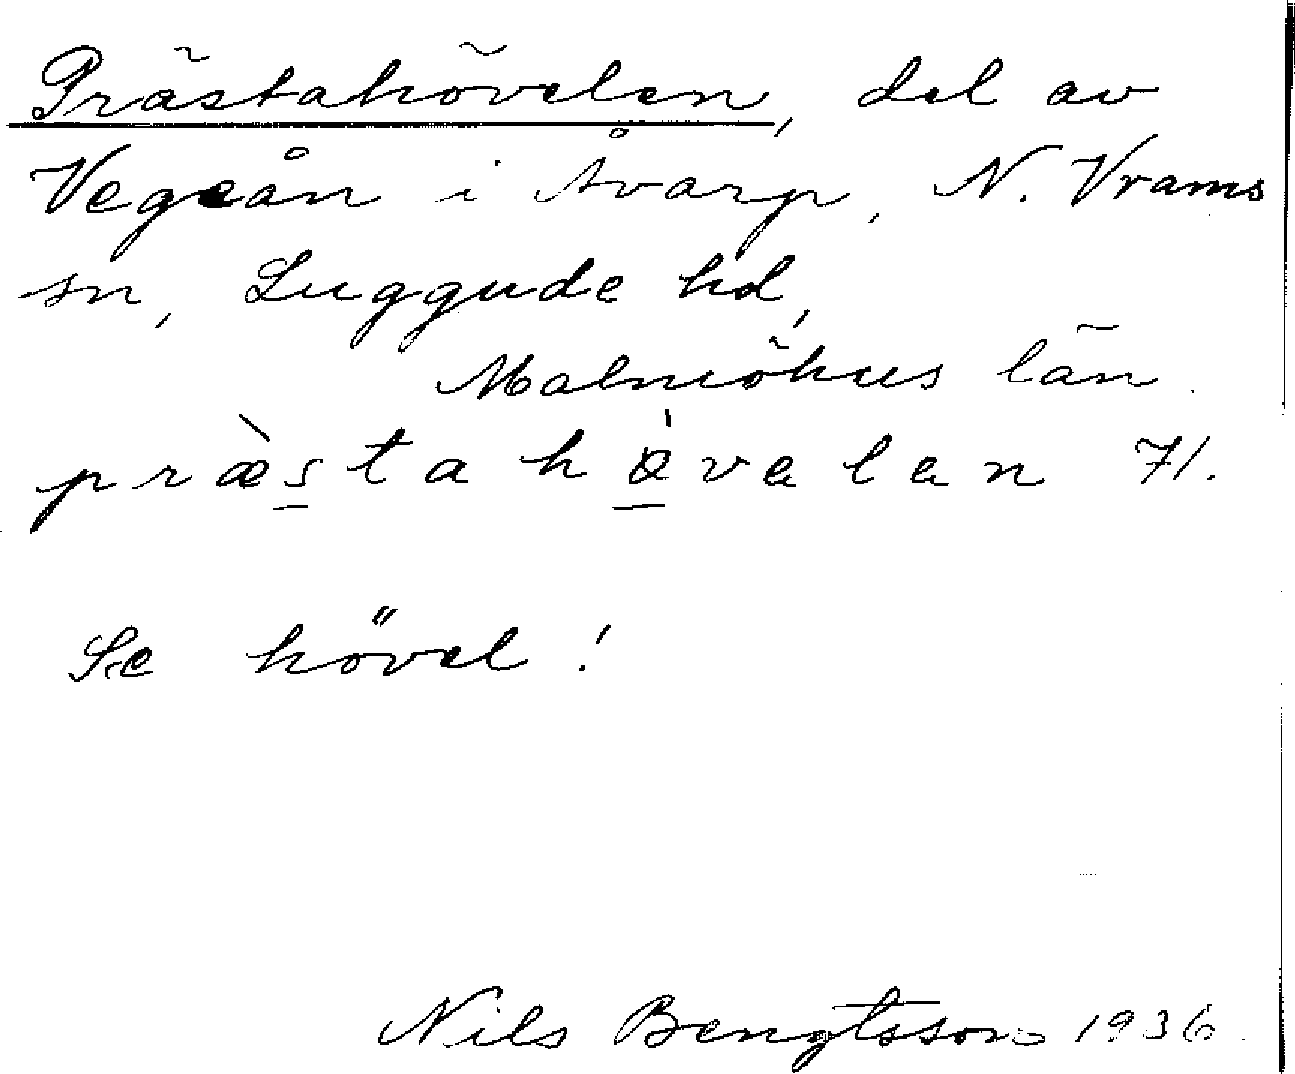 Prästahövelen, del av
Vegeån i Åvarp, N. Vrams
sn, Luggude hd,
Malmöhus län.
præ̀stahø̀velen 71.
Se hövel!
Nils Bengtsson 1936.